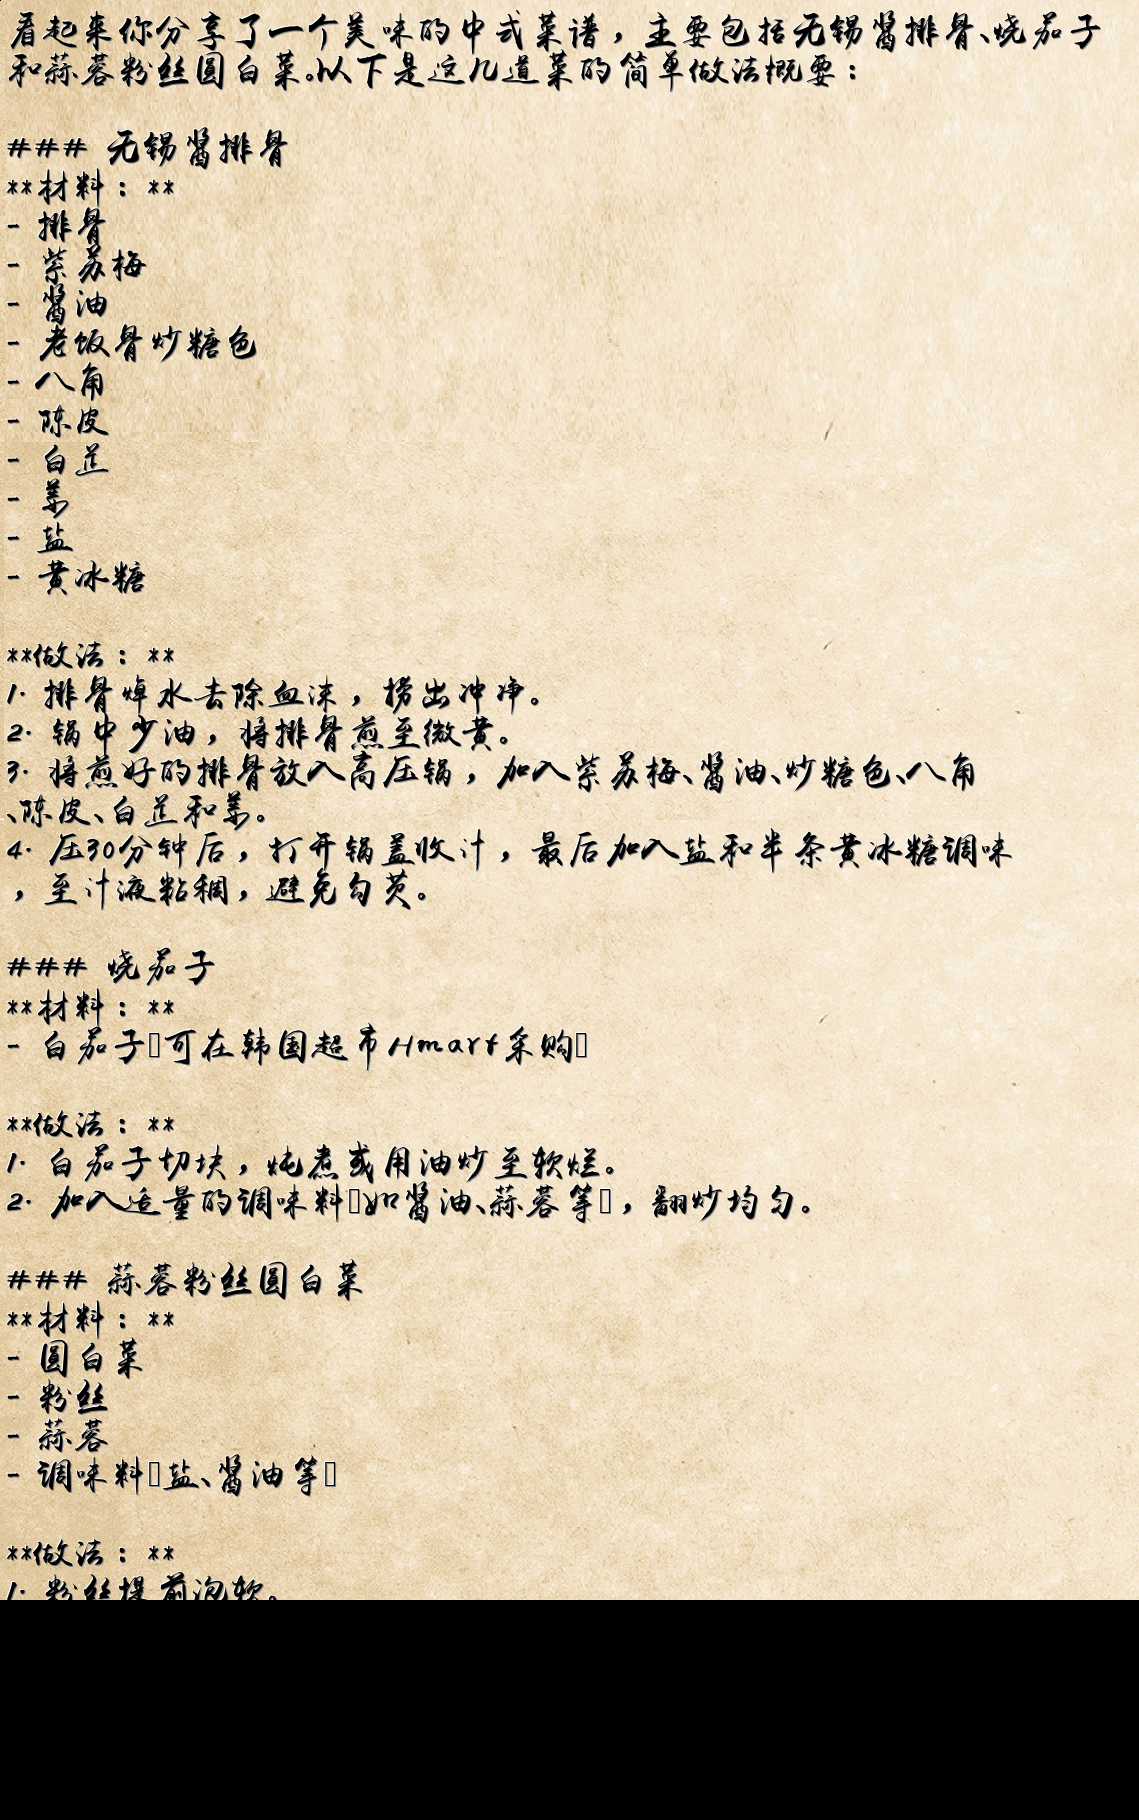 看起来你分享了一个美味的中式菜谱，主要包括无锡酱排骨、烧茄子
和蒜蓉粉丝圆白菜。以下是这几道菜的简单做法概要：
### 无锡酱排骨
**材料：**
- 排骨
- 紫苏梅
- 酱油
- 老饭骨炒糖色
- 八角
- 陈皮
- 白芷
- 姜
- 盐
- 黄冰糖
**做法：**
1. 排骨焯水去除血沫，捞出冲净。
2. 锅中少油，将排骨煎至微黄。
3. 将煎好的排骨放入高压锅，加入紫苏梅、酱油、炒糖色、八角
、陈皮、白芷和姜。
4. 压30分钟后，打开锅盖收汁，最后加入盐和半条黄冰糖调味
，至汁液粘稠，避免勾芡。
### 烧茄子
**材料：**
- 白茄子▯可在韩国超市Hmart采购▯
**做法：**
1. 白茄子切块，炖煮或用油炒至软烂。
2. 加入适量的调味料▯如酱油、蒜蓉等▯，翻炒均匀。
### 蒜蓉粉丝圆白菜
**材料：**
- 圆白菜
- 粉丝
- 蒜蓉
- 调味料▯盐、酱油等▯
**做法：**
1. 粉丝提前泡软。